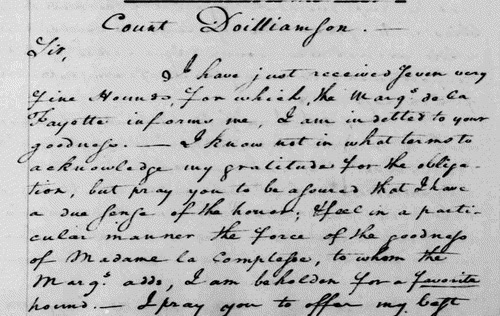 Count Doilliamson. —
Sir,
I have just received Seven very
fine Hounds, for which, the Marqs. de la
Fayette informs me, I am indebted to your
goodness. — I know not in what terms to
acknowledge my gratitude for the obliga-
tion, but pray you to be assured that I have
a due sense of the honor; & feel in a parti-
cular manner the force of the goodness
of Madame la Comptesse, to whom the
Marqs. adds, I am beholden for a favorite
hound. — I pray you to offer my best